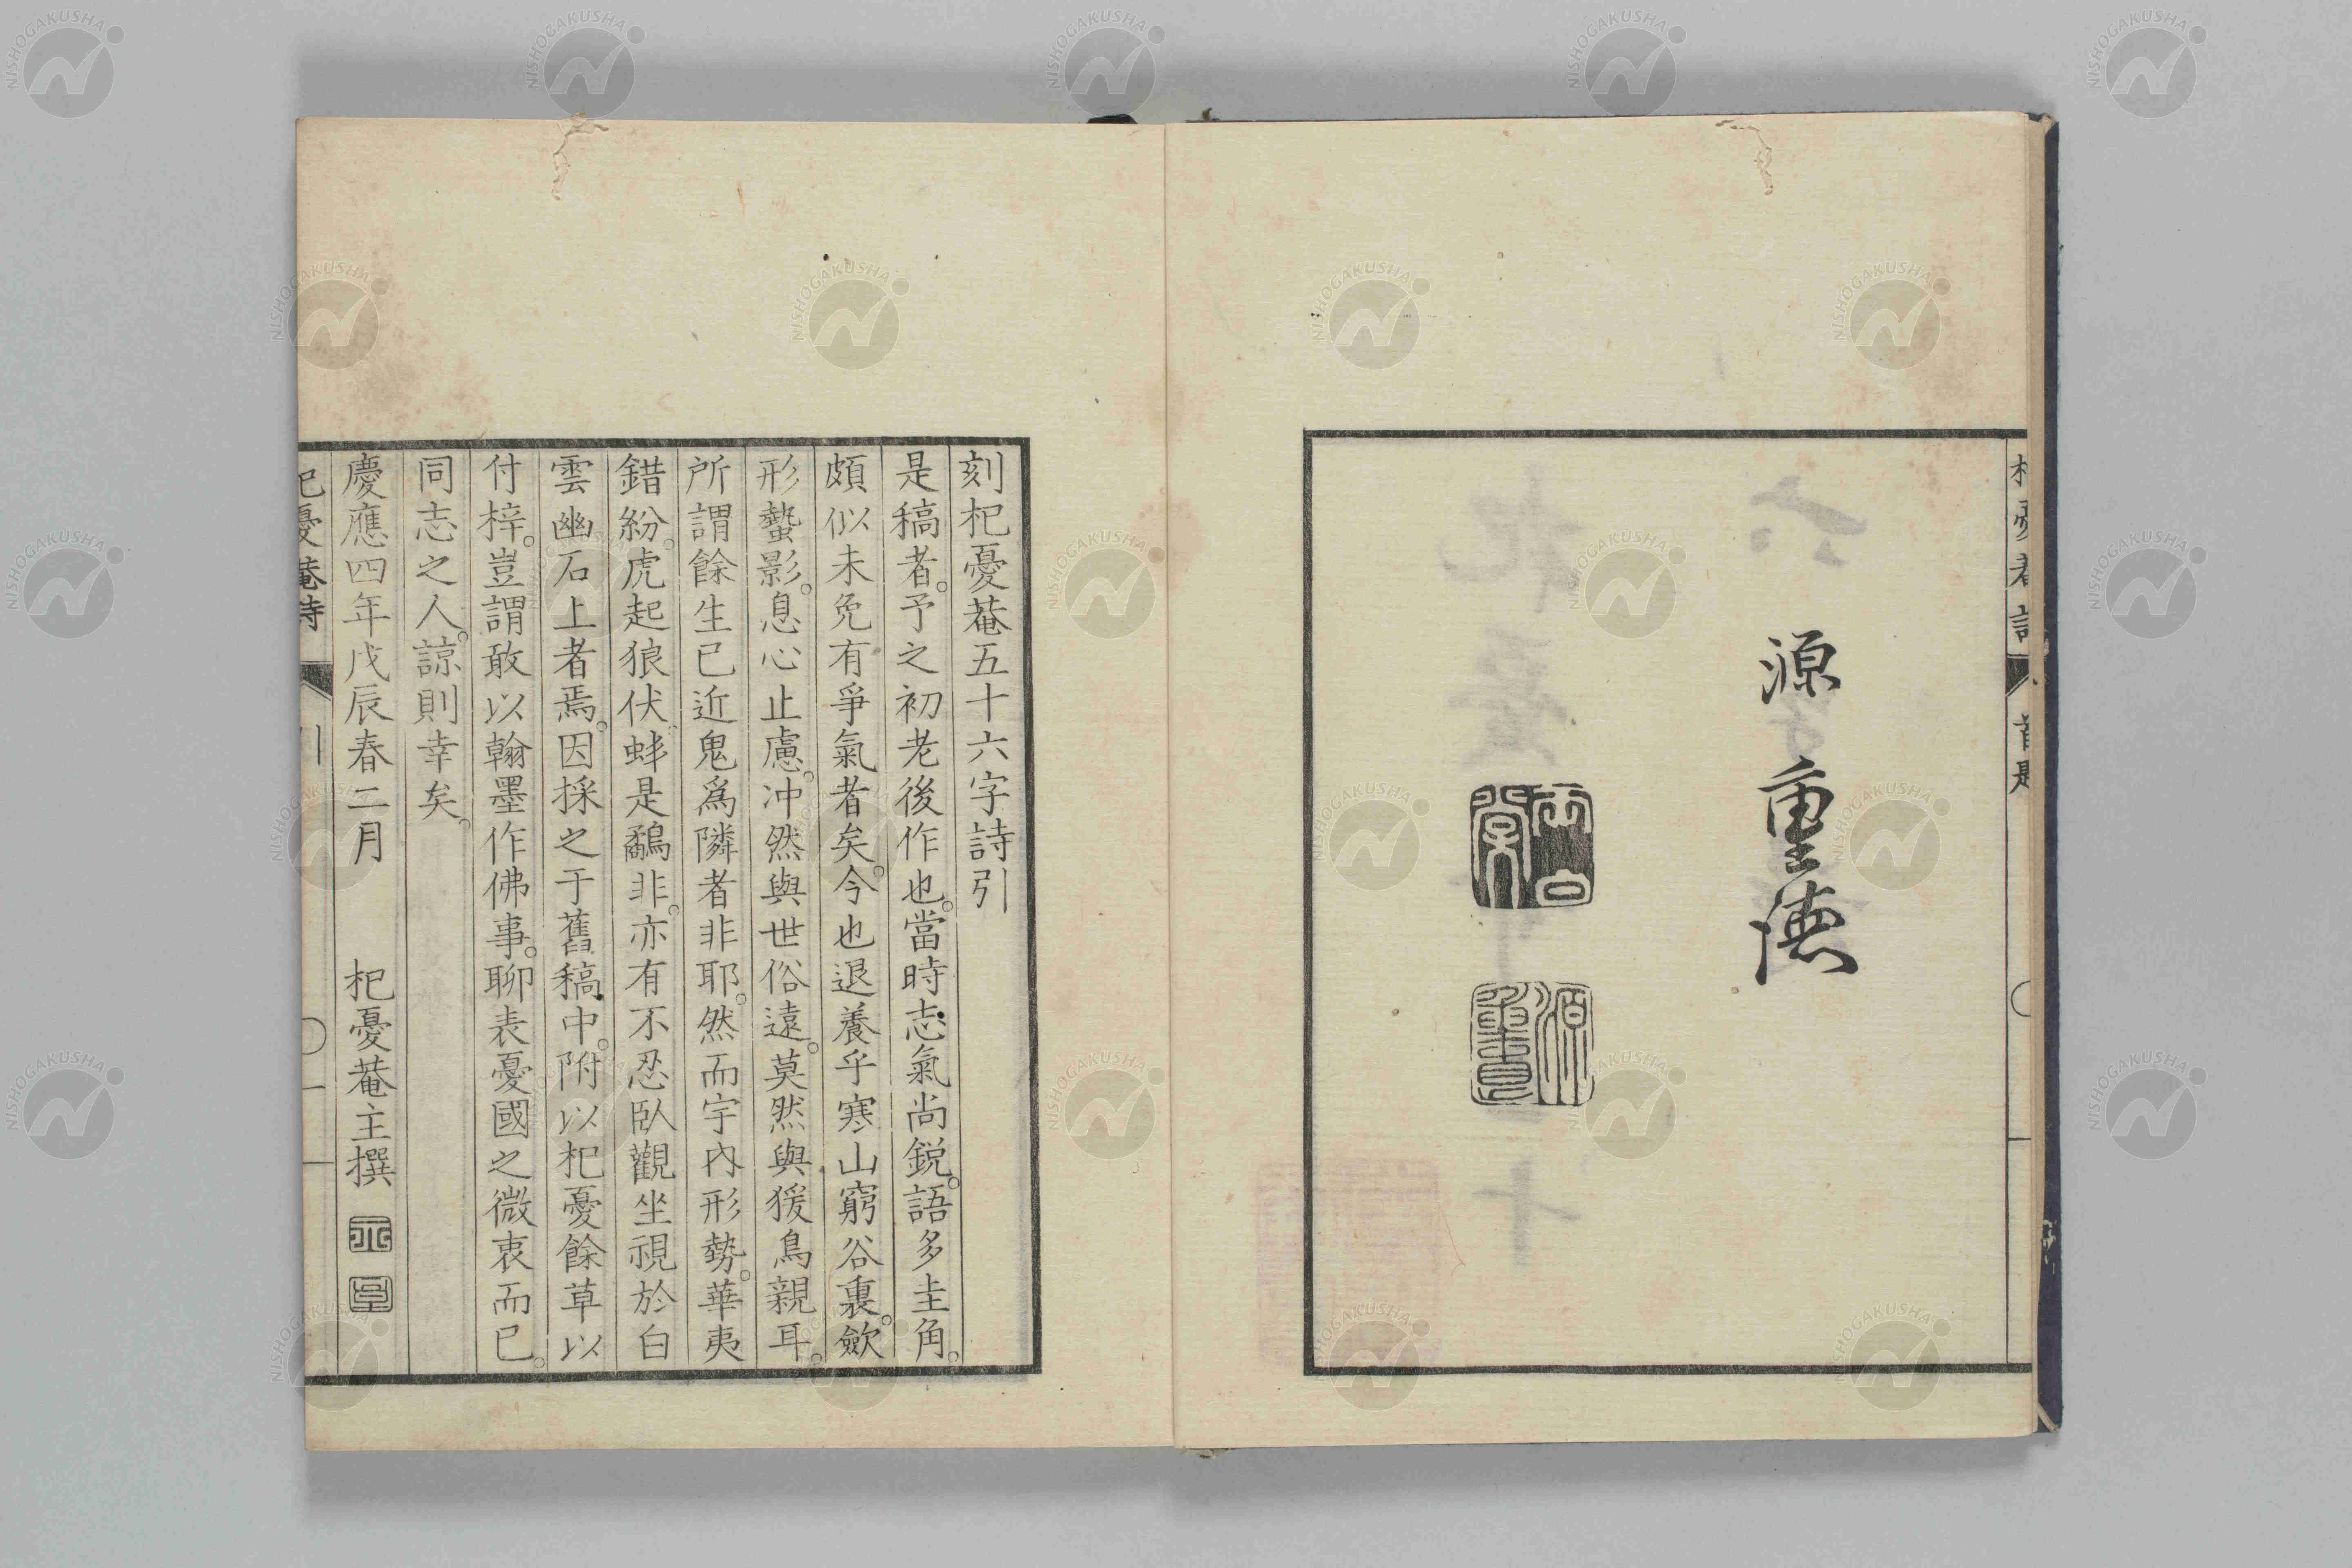 源重德
刻杞憂菴五十六字詩引
是稿者。予之初老後作也。當時志氣尚鋭。語多圭角。
頗似未免有爭氣者矣。今也退養乎寒山窮谷裏。歛
形蟄影。息心止慮。冲然與世俗遠。莫然與猨鳥親耳。
所謂餘生已近鬼爲隣者非耶。然而宇內形勢。華夷
錯紛。虎起狼伏。蚌是鷸非。亦有不忍臥觀坐視於白
雲幽石上者焉。因採之于舊稿中。附以杞憂餘草以
付梓。豈謂敢以翰墨作佛事。聊表憂國之微衷而已。
同志之人。諒則幸矣。
慶應四年戊辰春二月　杞憂菴主撰
杞憂菴詩 引 一
NISHOGAKUSHA